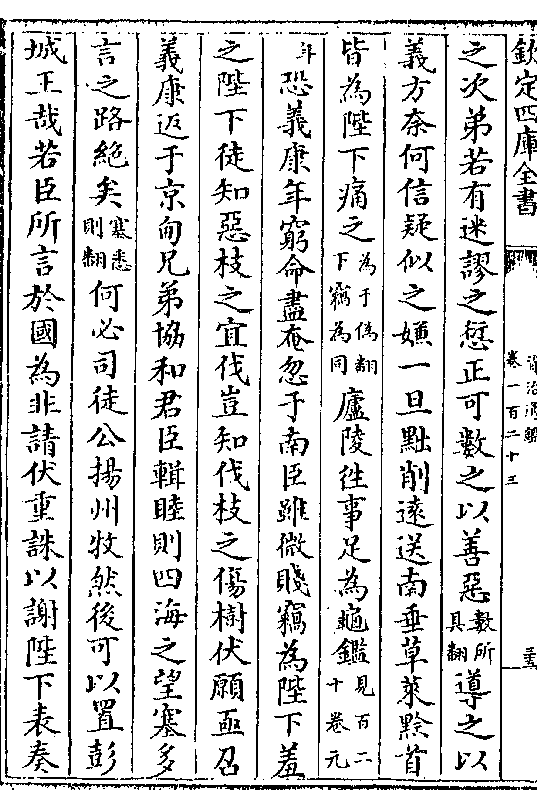 欽定四庫全書
資治通鑑
卷一百二十三
三五
之次弟若有迷謬之愆正可數之以善惡數所具翻導之以
義方奈何信疑似之嫌一旦黜削遠送南垂草萊黔首
皆為陛下痛之為于偽翻下竊為同廬陵往事足為龜鑑見百二十卷元
年恐義康年窮命盡奄忽于南臣雖微賤竊為陛下羞
之陛下徒知惡枝之宜伐豈知伐枝之傷樹伏願亟召
義康返于京甸兄弟協和君臣輯睦則四海之望塞多
言之路絶矣塞悉則翻何必司徒公揚州牧然後可以置彭
城王哉若臣所言於國為非請伏重誅以謝陛下表奏